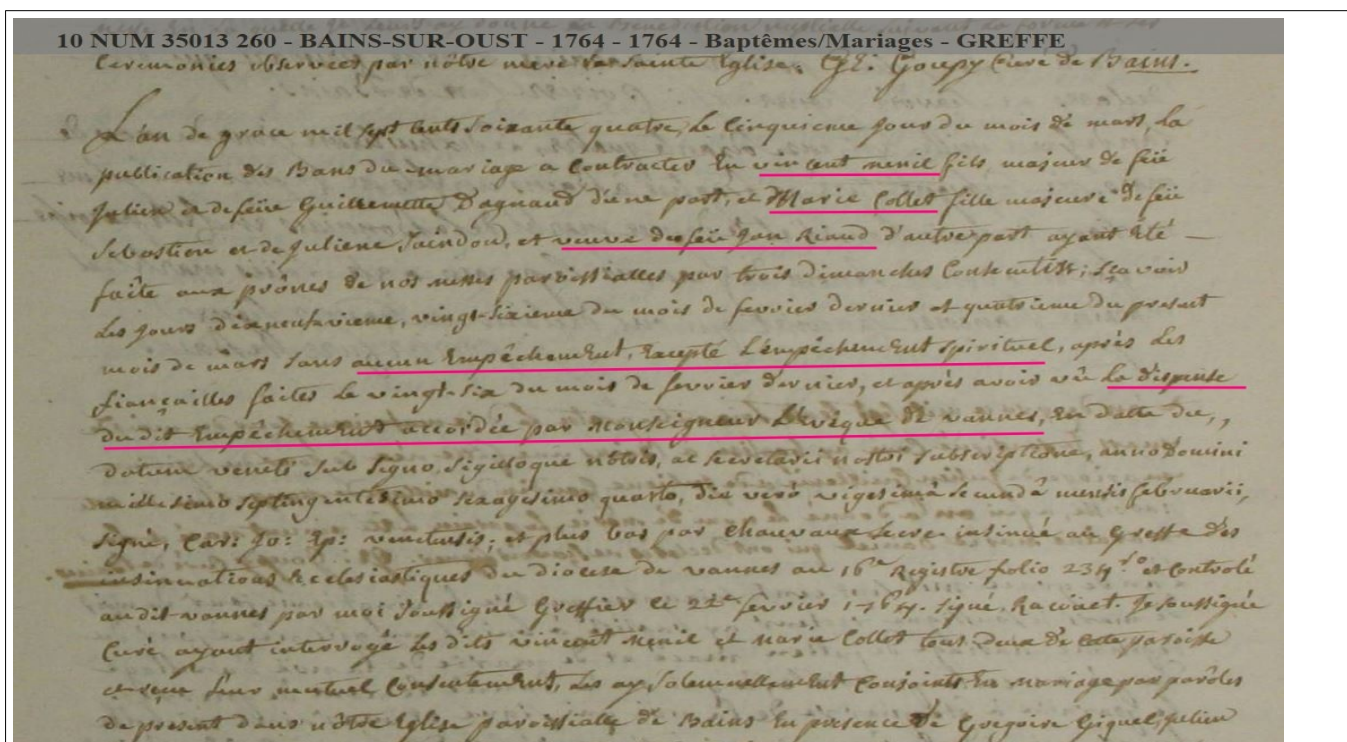 10 NUM 35013 260 - BAINS-SUR-OUST - 1764 - 1764 - Baptêmes/Mariages - GREFFE
Ceremonies observées par nôtre mere la Sainte Eglise. Goupy Curé de Bains.
L'an de grace mil sept cents soixante quatre, le cinquieme jour du mois de mars, la
publication des Bans du mariage a contracter En vincent menil fils majeur de feü
Julien et de feüe Guillemette Dagnaud d'une part, et Marie Collet fille majeure de feü
Sebastien et de Juliene Jaindou, et veuve de feü Jan Riaud d'autre part ayant Eté
faite aux prônes de nos messes paroissialles par trois dimanches Consecutifs; sçavoir
les jours dixneufvieme, vingt-sixieme du mois de fevrier dernier et quatrieme du present
mois de mars sans aucun Empêchement, Excepté L'empêchement spirituel, après les
fiançailles faites le vingt-six du mois de fevrier dernier, et après avoir vû la dispense
du dit Empêchement accordée par Monseigneur L'Evêque de vannes, En datte du,,
datum venetis sub signo, sigilloque nostris, ac secretarii nostri subscriptione, anno Domini
millesimo septingentesimo sexagesimo quarto, die verò vigesimâ secundâ mensis februarii,
signé, Car: Jo: Ep: venetensis; et plus bas par Chauvaux secre. insinué au Greffe des
insinuations Ecclesiastiques du diocese de vannes au 16e Registre folio 234 ro et Controlé
au dit vannes par moi soussigné Greffier le 22e fevrier 1764. signé, Je soussigné
Curé ayant interrogé les dits vincent menil et marie Collet tous deux de cette paroisse
et reçu leur mutuel Consentement, les ay solemnellement Conjoints En mariage par parôles
de present dans nôtre Eglise paroissialle de Bains En presence de Gregoire Giquel, Julien